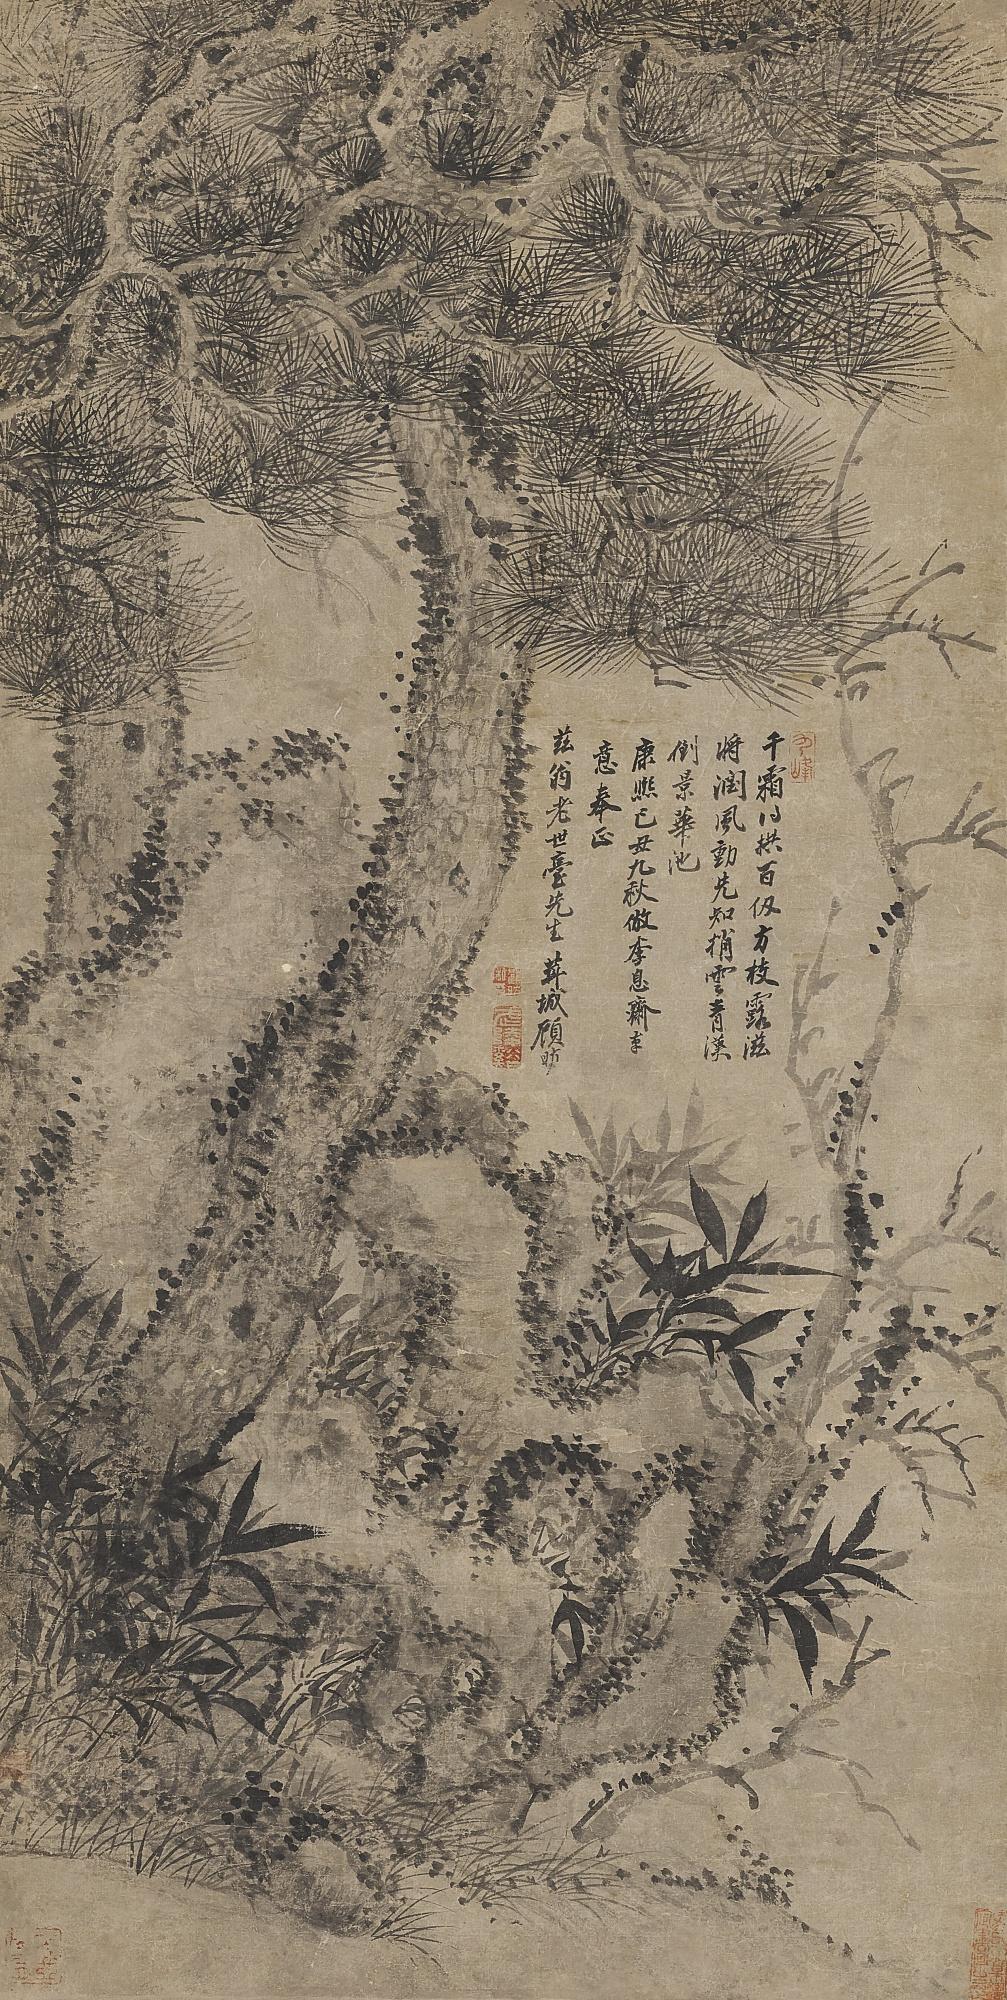 千霜以拱百仞方枝露滋
将润風動先知捎雲青漢
倒景華池
康熙己丑九秋倣李息齋筆
意奉正
茲翁老世臺先生 茸城顧昉